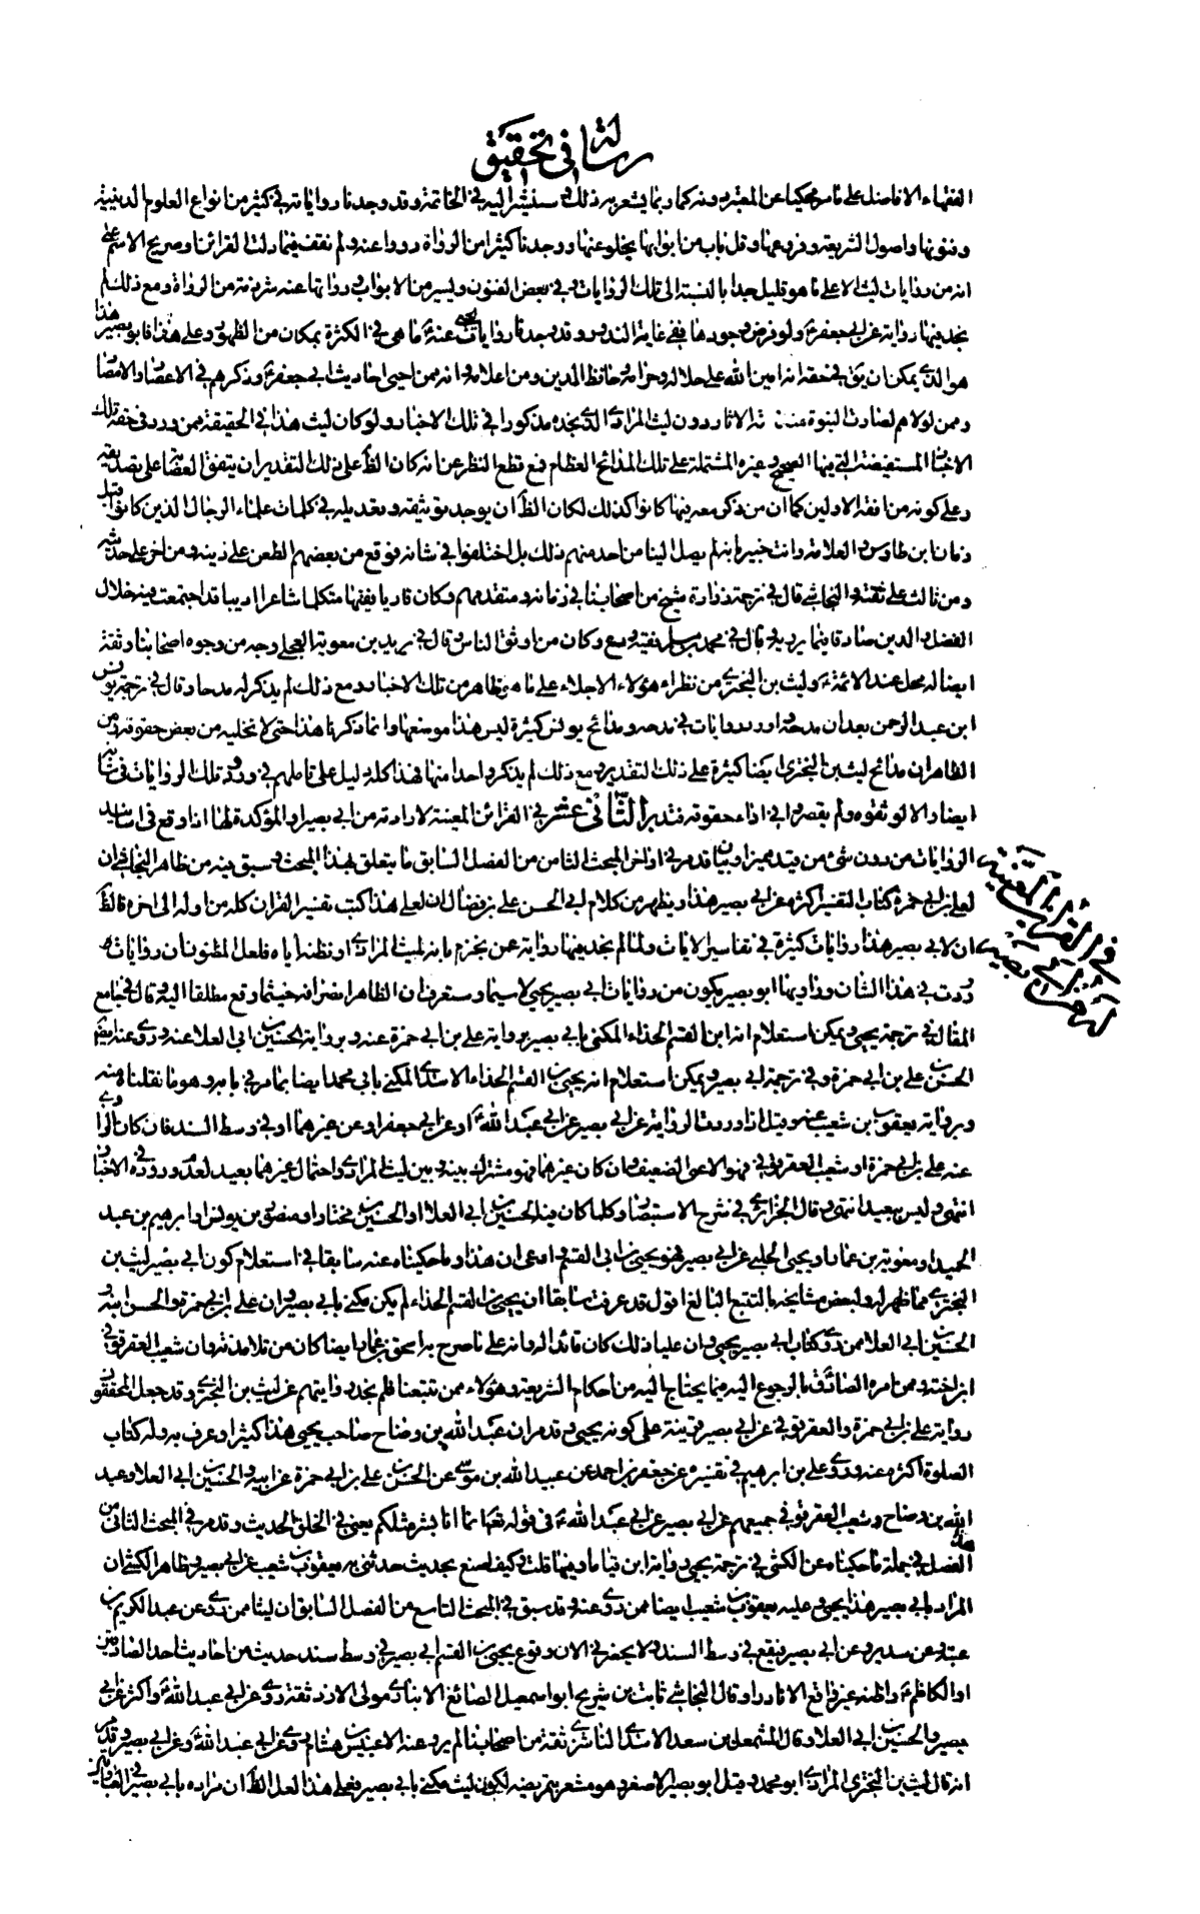 رسالة في تحقيق
الفقهاء الافاضل على ما مر محكيا عن المعتبر وانه كما وبما يشعر به ذلك وسنشير اليه في الخاتمة وقد وجدنا رواياته في كثير من انواع العلوم الدينية
وفنونها واصول الشريعة وفروعها وقل باب من ابوابها يخلو عنها ووجدنا كثيرا من الرواة رووا عنه ولم نقف فيما دلت القرائن او صريح الاسم على
انه من روايات ليث الا على ما هو قليل جدا بالنسبة الى تلك الروايات وفي بعض الفنون ويسير من الابواب رواتها عنه شرذمة من الرواة ومع ذلك لم
نجد فيها رواية عن ابي جعفر ع ولو فرض وجودها ففي غاية الندرة وقد وجدنا روايات يحيى عنه ع ما هي في الكثرة بمكان من الظهور وعلى هذا فابو بصير هذا
هو الذي يمكن ان يق في حقه انه امين الله على حلاله وحرامه وحافظ الدين ومن اعلامه وانه ممن احيى احاديث ابي جعفر ع وذكرهم في الاعصار والامصار
ومن لولاهم لصارت النبوة الاثار دون ليث المرادي الذي نجده مذكورا في تلك الاخبار ولو كان ليث هذا في الحقيقة ممن ورد في حقه تلك
الاخبار المستفيضة التي فيها الصحيح وغيره المشتملة على تلك المدائح العظام فمع قطع النظر عن انه كان الظ على ذلك التقدير ان يتفق العصابة على تصديقه
وعلى كونه من افقه الاولين كما ان من ذكر معه فيها كانوا كذلك لكان الظ ان يوجد توثيقه وتعديله في كلمات علماء الرجال الذين كانوا قبل
زمان ابن طاوس والعلامة وانت خبير بانه لم يصل الينا من احد منهم ذلك بل اختلفوا في شانه فوقع من بعضهم الطعن على دينه ومن اخر على حديثه
ومن ثالث على ثقته والنجاشي قال في ترجمة زرارة شيخ من اصحابنا في زمانه ومتقدمهم وكان قاريا فقيها متكلما شاعرا اديبا قد اجتمعت فيه خلال
الفضل والدين صادقا فيما يرويه وقال في محمد بن مسلم فقيه ورع وكان من اوثق الناس وقال في بريد بن معوية العجلي وجه من وجوه اصحابنا وثقة
ايضا له محل عند الائمة ع وليث بن البختري من نظراء هؤلاء الاجلاء على ما هو ظاهر من تلك الاخبار ومع ذلك لم يذكر له مدحا وقال في ترجمة يونس
ابن عبد الرحمن بعد ان مدحه واورد روايات في مدحه ومدائح يونس كثيرة ليس هذا موضعها وانما ذكرنا هذا حتى لا نخليه من بعض حقوقه ومن
الظاهر ان مدائح ليث بن البختري ايضا كثيرة على ذلك التقدير ومع ذلك لم يذكر واحدا منها فهذا كله دليل على تاملهم في ورود تلك الروايات في شانه
ايضا والا لوثقوه ولم يقصروا في اداء حقوقه فتدبر الثاني عشر في القرائن المعينة لارادته من ابي بصير او المؤكدة لها اذا وقع في اسانيد
الروايات من دون شئ من قيد مميز او بيان قد مر في اواخر المبحث الثامن من الفصل السابق ما يتعلق بهذا المبحث وسبق فيه من ظاهر النجاشي ان
لعلي بن ابي حمزة كتاب التفسير اكثره عن ابي بصير هذا ويظهر من كلام ابي الحسن علي بن فضال ان لعلي هذا كتب تفسير القران كله من اوله الى اخره فالظ
ان لابي بصير هذا روايات كثيرة في تفاسير الايات ولما لم نجد فيها رواية عن نجزم بانه ليث المرادي او نظنه اياه فلعل المظنون ان روايات
وردت في هذا الشان وراويها ابو بصير يكون من روايات ابي بصير يحيى لا سيما وستعرف ان الظاهر انصرافه حيثما وقع مطلقا اليه وقال في جامع
المقال في ترجمة يحيى ويمكن استعلام انه ابن القسم الحذاء المكنى بابي بصير برواية علي بن ابي حمزة عنه وبرواية الحسين بن ابي العلا عنه وروى عنه ايضا
الحسن بن علي بن ابي حمزة وفي ترجمة ابي بصير ويمكن استعلام انه يحيى بن القسم الحذاء الاسدي المكنى بابي محمد ايضا بما مر في بابه وهو ما نقلناه منه
وبرواية يعقوب بن شعيب عنه وقيل اذا وردت الرواية عن ابي بصير عن ابي عبد الله ع او عن ابي جعفر او عن غيرهما او في وسط السند فان كان الراوي
عنه علي بن ابي حمزة او شعيب العقرقوفي فهو الاعمى الضعيف وان كان غيرهما فهو مشترك بينه وبين ليث المرادي واحتمال غيرهما بعيد لعدم وروده في الاخبار
انتهى وليس ببعيد انتهى وقال الجزائري في شرح الاستبصار وكلما كان فيه الحسين بن ابي العلا او الحسين بن مختار او منصور بن يونس او ابرهيم بن عبد
الحميد او معوية بن عمار او يحيى الحلبي عن ابي بصير فهو يحيى بن ابي القسم وادعى ان هذا وما حكيناه عنه سابقا في استعلام كون ابي بصير ليث بن
البختري مما ظهر له ولبعض مشايخه بالتتبع البالغ اقول قد عرفت سابقا ان يحيى بن القسم الحذاء لم يكن مكنى بابي بصير وان علي بن ابي حمزة والحسن ابنه و
الحسين بن ابي العلا ممن روى كتاب ابي بصير يحيى وان عليا ذلك كان قائد الرمانه على ما صرح به اسحق بن عمار وايضا كان من تلامذته وان شعيب العقرقوفي
ابن اخته وممن امره الصادق ع بالرجوع اليه فيما يحتاج اليه من احكام الشريعة وهؤلاء ممن تتبعنا فلم نجد روايتهم عن ليث بن البختري وقد جعل المحققون
رواية علي بن ابي حمزة والعقرقوفي عن ابي بصير قرينة على كونه يحيى وقد مر ان عبد الله بن وضاح صاحب يحيى هذا كثيرا وعرف به وله كتاب
الصلوة اكثره عنه وروى علي بن ابرهيم في تفسيره عن جعفر بن احمد عن عبيد الله بن موسى عن الحسن بن علي بن ابي حمزة عن ابيه والحسين بن ابي العلا وعبد
الله بن وضاح وشعيب العقرقوفي جميعهم عن ابي بصير عن ابي عبد الله ع في قوله تعالى انما انا بشر مثلكم يعني في الخلق الحديث وقد مر في المبحث الثاني من هذا
الفصل في جملة ما حكيناه عن الكشي في ترجمة يحيى رواية ابن قياما وفيها قلت فكيف اصنع بحديث حدثني به يعقوب بن شعيب عن ابي بصير وظاهر الكشي ان
المراد بابي بصير هذا يحيى وعليه يعقوب بن شعيب ايضا ممن روى عنه وقد سبق في المبحث التاسع من الفصل السابق ان ليثا ممن روى عن عبد الكريم بن
عتبة وعن سدير وعن ابي بصير فيقع في وسط السند ولا يحضرني الان وقوع يحيى بن القسم ابي بصير في وسط سند حديث من احاديث احد الصادقين
او الكاظم ع واظنه غير واقع الا نادرا وقال النجاشي ثابت بن شريح ابو اسمعيل الصائغ الانباري مولى الازد ثقة روى عن ابي عبد الله ع واكثر عن ابي
بصير والحسين بن ابي العلا وقال المشمعل بن سعد الاسدي الناشري ثقة من اصحابنا لم يرو عنه الا عبيس بن هشام روى عن ابي عبد الله ع وعن ابي بصير وقد مر
انه قال ليث بن البختري المرادي ابو محمد وقيل ابو بصير الاصغر وهو مشعر بتمريضه لكون ليث مكنى بابي بصير فعلى هذا لعل الظ ان مراده بابي بصير في العبارتين
في القرائن المعينة
لارادة ابي بصير